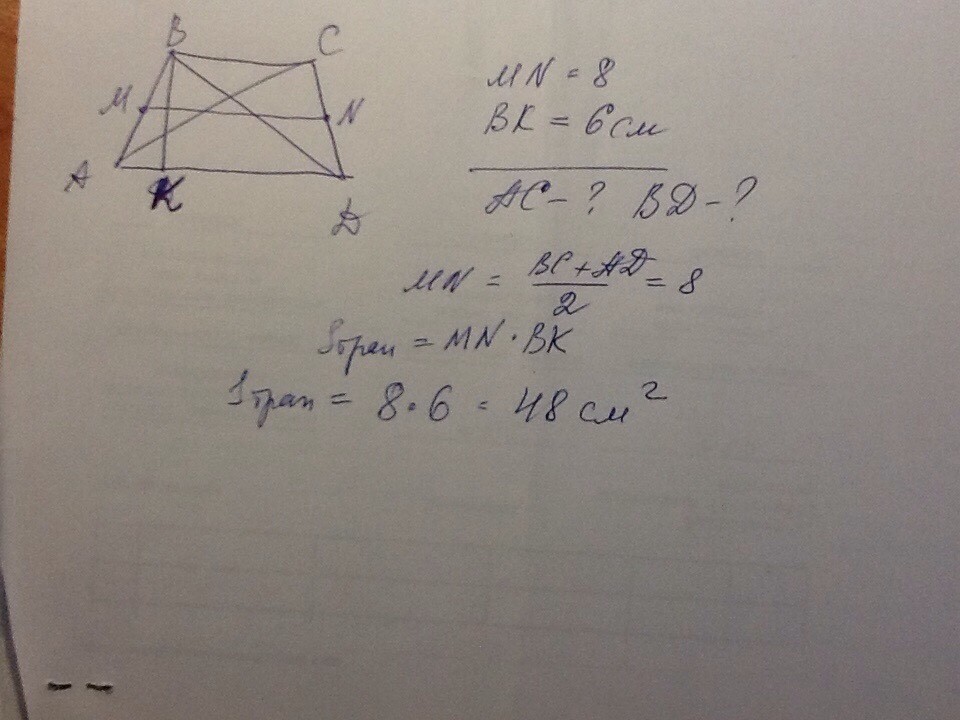 B C
M N
A K D
MN = 8
BK = 6 см
AC - ? BD - ?
MN = (BC + AD)/2 = 8
Sтрап = MN · BK
Sтрап = 8 · 6 = 48 см²